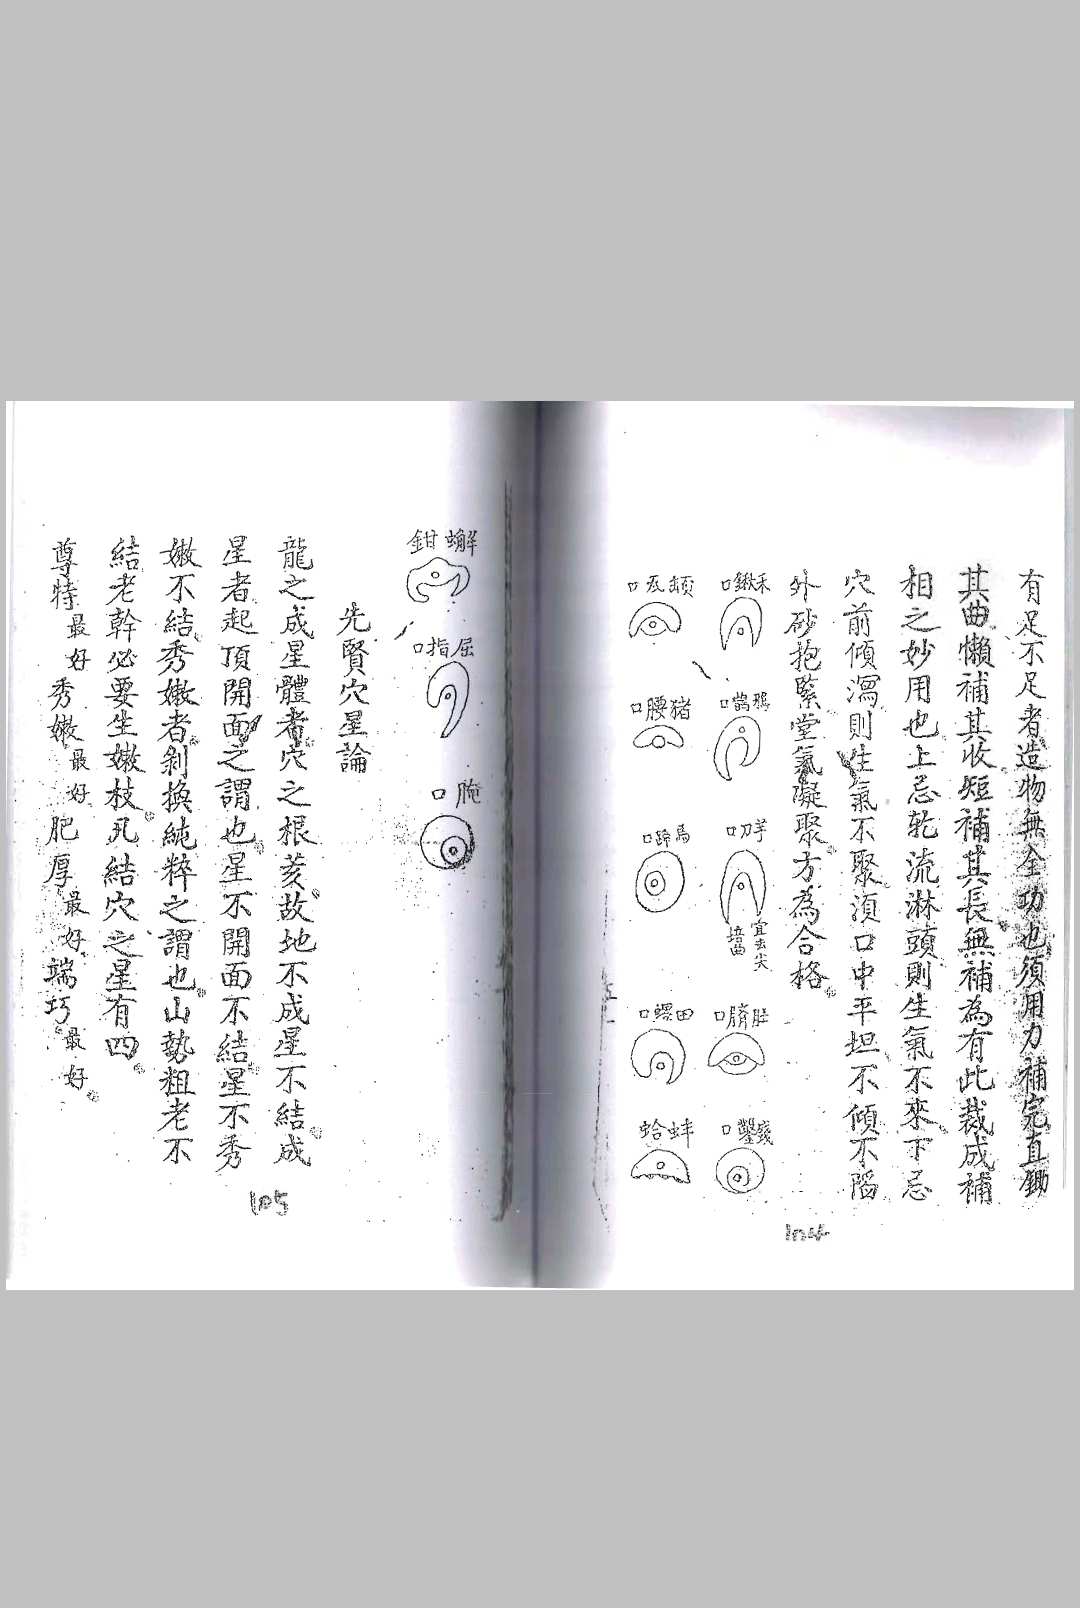 有足不足者造物無全功也須用力補完直鋤
其曲懶補其收短補其長無補為有此裁成補
相之妙用也上忌乾流淋頭則生氣不來下忌
穴前傾瀉則生氣不聚須口中平坦不傾不陷
外砂抱緊堂氣凝聚方為合格
禾鍬口
鵶鵲口
羊刀口
宜去尖
肚臍口
口鑿
瓜口
猪腰口
馬蹄口
田螺口
蚌蛤
104
蠏鉗
屈指口
腕口
先賢穴星論
龍之成星體者穴之根荄故地不成星不結成
星者起頂開面之謂也星不開面不結星不秀
嫩不結秀嫩者剝換純粹之謂也山勢粗老不
結老幹必要生嫩枝凡結穴之星有四
尊特最好秀嫩最好肥厚最好端巧最好
105